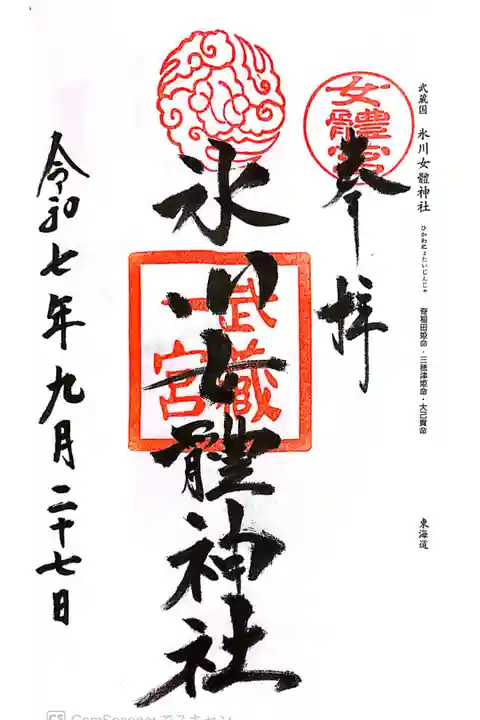 武蔵国　氷川女體神社　ひかわにょたいじんじゃ　奇稲田姫命・三穂津姫命・大己貴命　東海道
女體宮
奉拝
氷川女體神社
武蔵
一宮
令和七年九月二十七日
CS CamScannerでスキャン